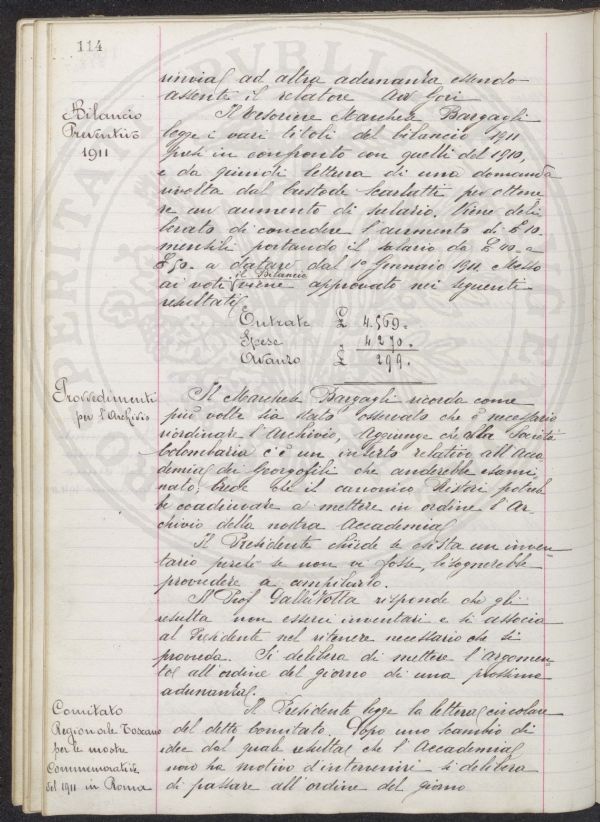 114
rinvia ad altra adunanza essendo
assente il relatore Avv Gori
Bilancio
Preventivo
1911
Il Tesoriere Marchese Bargagli
legge i vari titoli del bilancio 1911
posti in confronto con quelli del 1910,
e da quindi lettura di una domanda
rivolta dal custode Scarlatti per ottene
re un aumento di salario. Viene deli
berato di concedere l'aumento di £ 10.
mensili portando il salario da £ 40. a
£ 50. a datare dal 1º Gennaio 1911. Messo
ai voti il Bilancio viene approvato nei seguenti
resultati
Entrate £ 4.569.
Spese " 4270.
Avanzo £ 299.
Provvedimenti
per l'Archivio
Il Marchese Bargagli ricorda come
più volte sia stato osservato che è necessario
riordinare l'Archivio, aggiunge che alla Società
Colombaria c'è un inserto relativo all'Acca
demia dei Georgofili che anderebbe esami
nato; crede che il canonico potreb
be coadiuvare a mettere in ordine l'Ar
chivio della nostra Accademia
Il Presidente chiede se esista un inven
tario perchè se non vi fosse, bisognerebbe
provvedere a compilarlo.
Il Prof Dalla Volta risponde che gli
resulta non esserci inventari e si associa
al Presidente nel ritenere necessario che si
provveda. Si delibera di mettere l'argomen
to all'ordine del giorno di una prossima
adunanza.
Comitato
Regionale Toscano
per le mostre
Commemorative
del 1911 in Roma
Il Presidente legge la lettera circolare
del detto Comitato. Dopo uno scambio di
idee dal quale resulta che l'Accademia
non ha motivo d'intervenire si delibera
di passare all'ordine del giorno